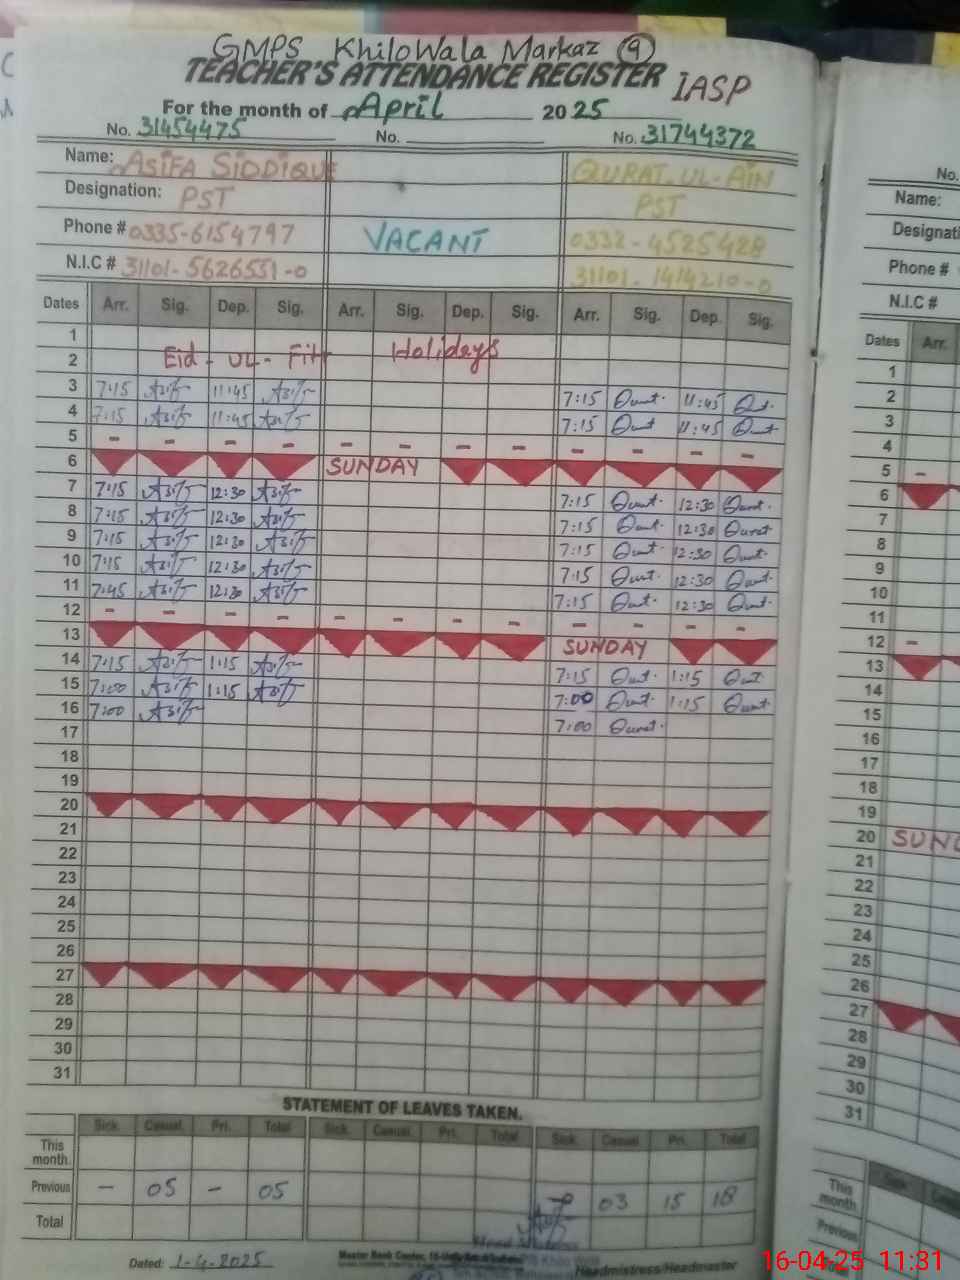 GMPS KhiloWala Markaz 9
TEACHER'S ATTENDANCE REGISTER IASP
For the month of April 2025
No. 31454475 No. No. 31744372
Name: ASIFA SIDDIQUE QURAT-UL-AIN
Designation: PST PST
Phone # 0335-6154797 VACANT 0332-4525428
N.I.C # 31101-5626531-0 31101-1414210-0
Dates Arr. Sig. Dep. Sig. Arr. Sig. Dep. Sig. Arr. Sig. Dep. Sig.
1
2 Eid-UL-Fitr Holidays
3 7:15 11:45 7:15 Qurat. 11:45 Qurat.
4 7:15 11:45 7:15 Qurat 11:45 Qurat
5 - - - - - - - - - - - -
6 SUNDAY
7 7:15 12:30 7:15 Qurat. 12:30 Qurat.
8 7:15 12:30 7:15 Qurat. 12:30 Qurat
9 7:15 12:30 7:15 Qurat. 12:30 Qurat.
10 7:15 12:30 7:15 Qurat. 12:30 Qurat.
11 7:45 12:30 7:15 Qurat. 12:30 Qurat.
12 - - - - - - - - - - - -
13 SUNDAY
14 7:15 1:15 7:15 Qurat. 1:15 Qurat.
15 7:00 1:15 7:00 Qurat. 1:15 Qurat.
16 7:00 7:00 Qurat.
17
18
19
20
21
22
23
24
25
26
27
28
29
30
31
STATEMENT OF LEAVES TAKEN.
Sick. Casual. Pri. Total Sick. Casual. Pri. Total Sick. Casual Pri. Total
This month.
Previous - 05 - 05 03 15 18
Total
Dated: 1-4-2025
Headmistress/Headmaster
No.
Name:
Phone #
N.I.C #
Dates Arr.
1
2
3
4
5 -
6
7
8
9
10
11
12 -
13
14
15
16
17
18
19
20
21
22
23
24
25
26
27
28
29
30
31
This month
Previous
16-04-25 11:31